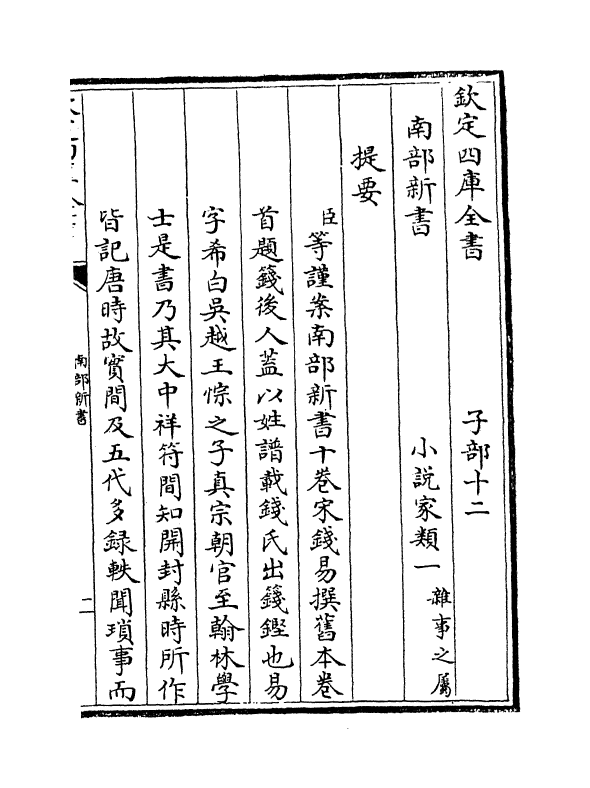 欽定四庫全書　子部十二
南部新書　小說家類一　雜事之屬
提要
臣等謹案南部新書十卷宋錢易撰舊本卷
首題籛後人蓋以姓譜載錢氏出籛鏗也易
字希白吳越王悰之子真宗朝官至翰林學
士是書乃其大中祥符間知開封縣時所作
皆記唐時故實間及五代多録軼聞瑣事而
南部新書